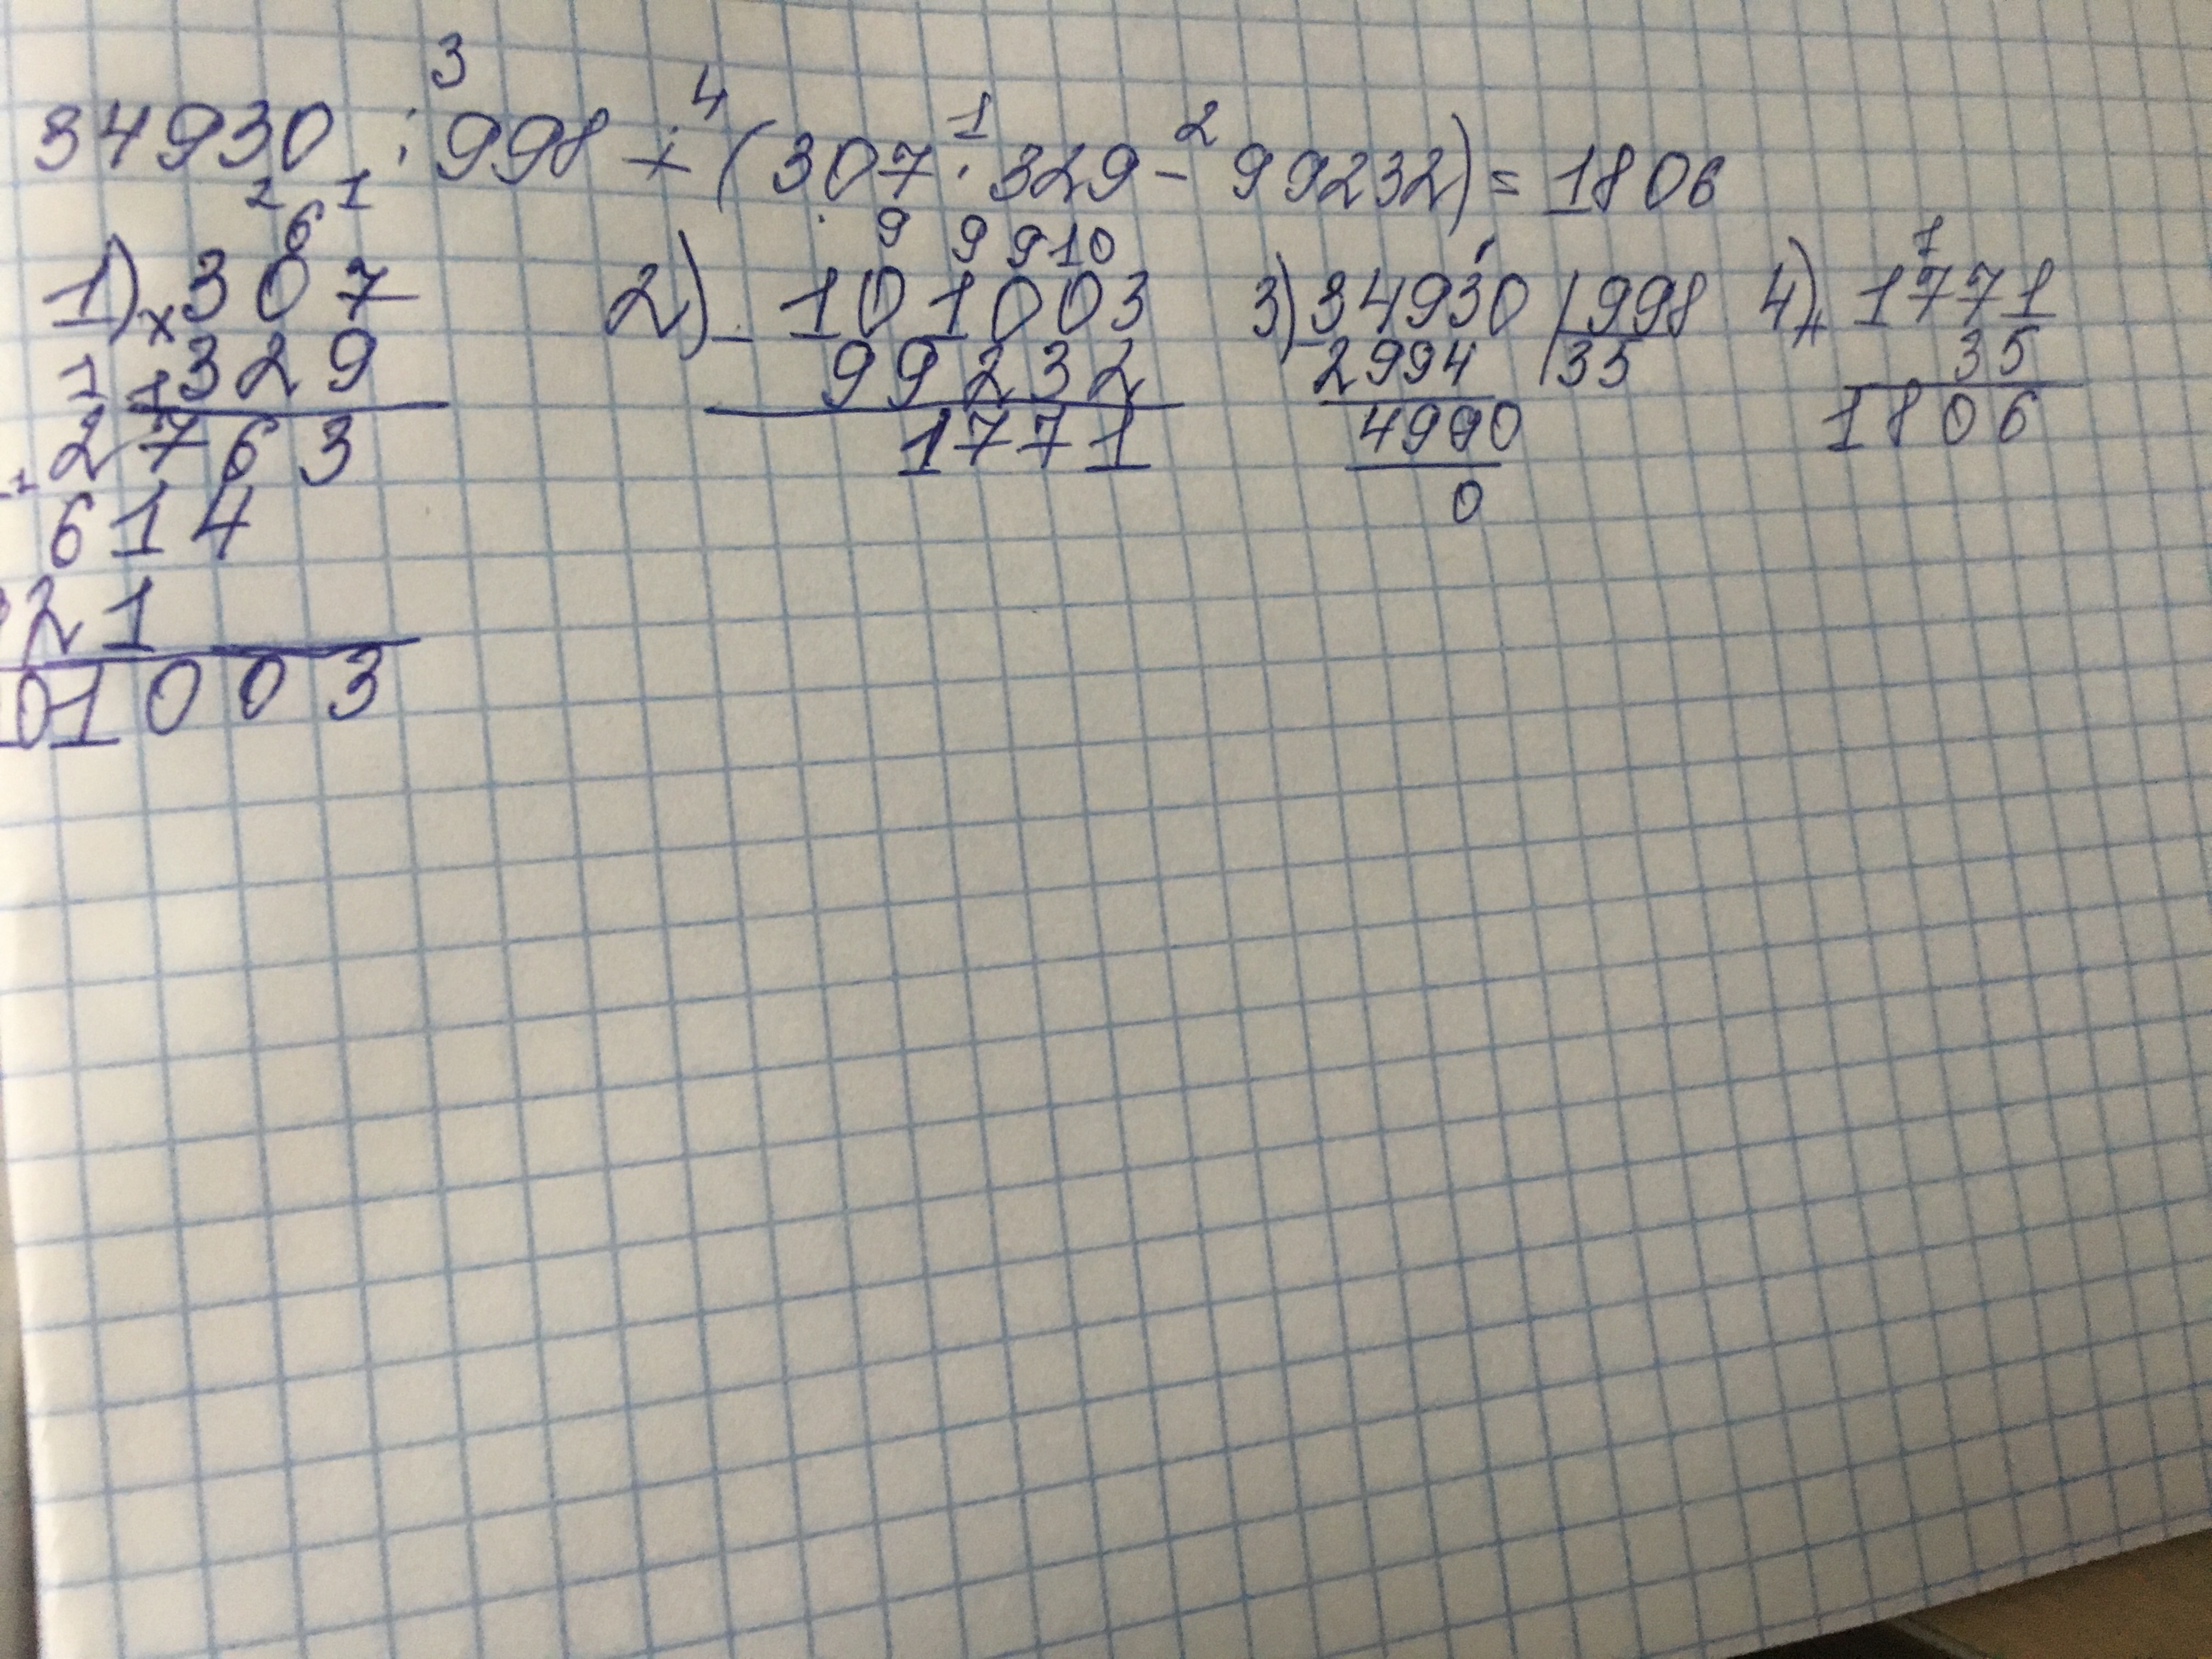 3 4 1 2
34930 : 998 + (307 · 329 - 99232) = 1806
2 6 1
1) × 307
329
2763
614
21
01003
9 9 9 10
2) - 101003
99232
1771
3) - 34930 | 998
2994 | 35
4990
0
1
4) + 1771
35
1806